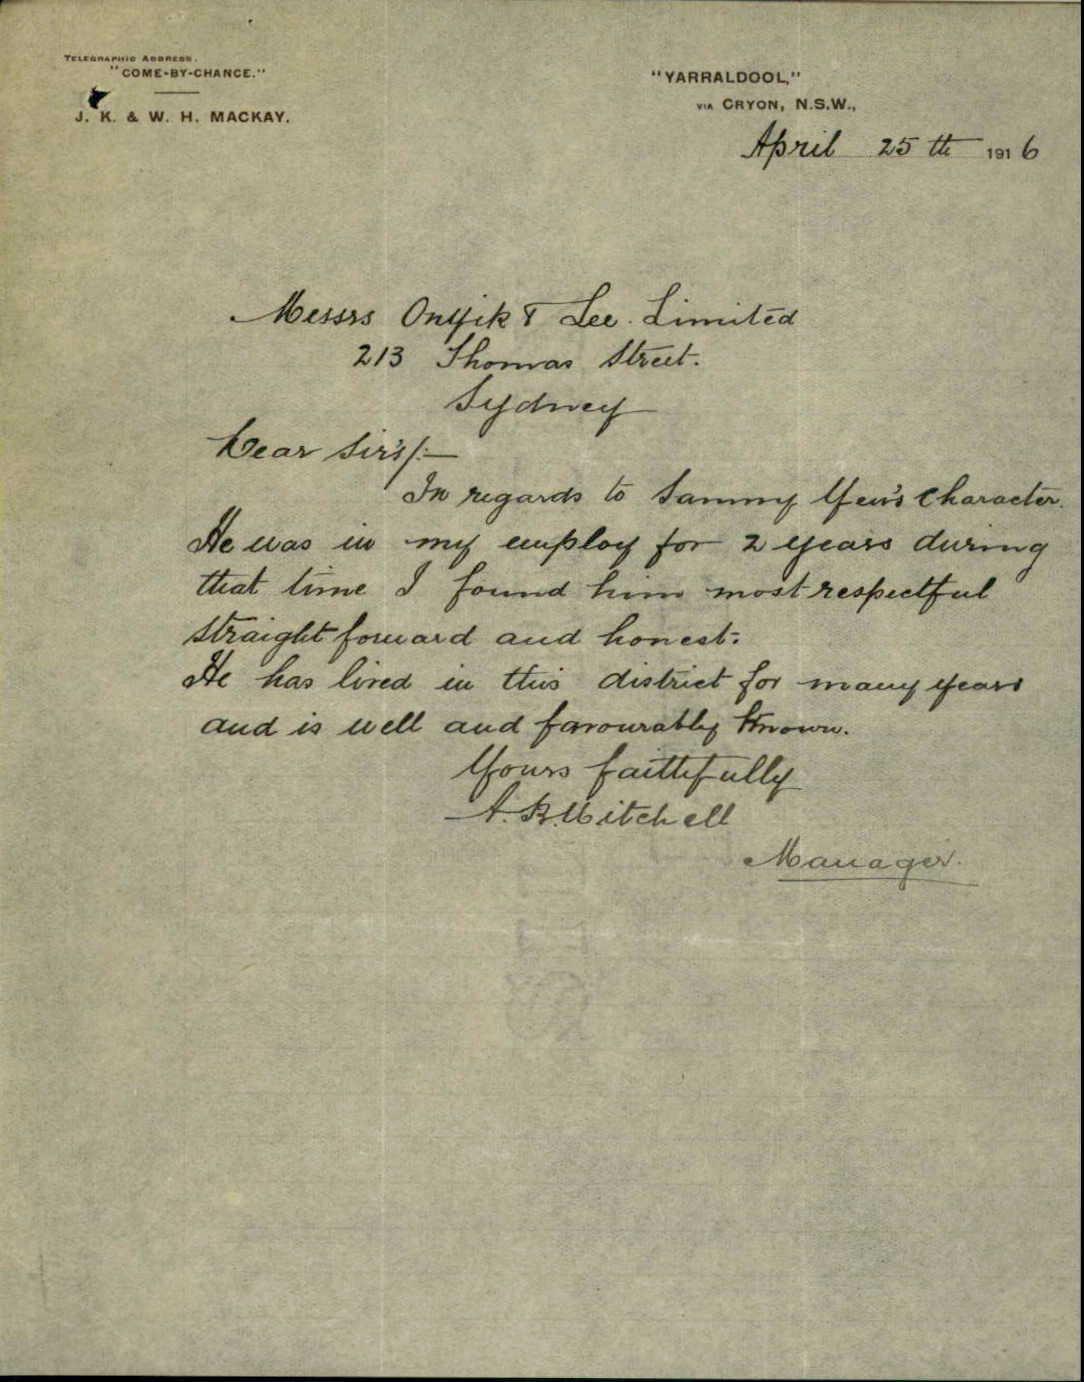 TELEGRAPHIC ADDRESS.
"COME-BY-CHANCE."
J. K. & W. H. MACKAY.
"YARRALDOOL,"
VIA CRYON, N.S.W.,
April 25th 1916
Messrs OnYik & Lee. Limited
213 Thomas Street.
Sydney
Dear Sir's/:—
In regards to Sammy Yew's Character.
He was in my employ for 2 years during
that time I found him most respectful
straightforward and honest.
He has lived in this district for many years
and is well and favourably known.
Yours faithfully
A. B. Mitchell
Manager.